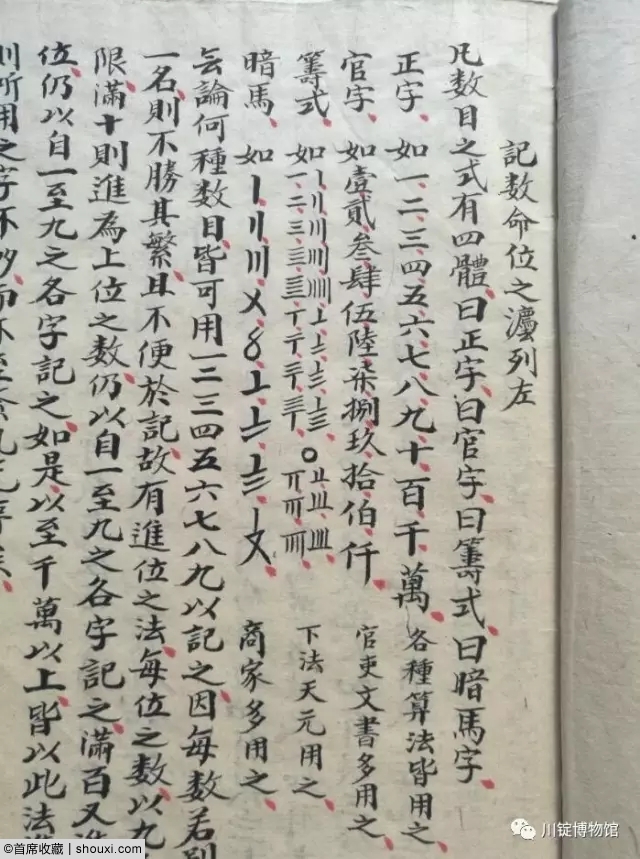 記数命位之灋列左
凡数目之式有四體曰正字曰官字曰籌式曰暗馬字
正字 如一二三四五六七八九十百千萬 各種算法皆用之
官字 如壹貳叁肆伍陸柒捌玖拾伯仟 官吏文書多用之
籌式 如 下法天元用之
暗馬 如〡〢〣〤〥〦〧〨〡〩 商家多用之
無論何種数目皆可用一二三四五六七八九以記之因每数若別
一名則不勝其繁且不便於記故有進位之法每位之数以九
限滿十則進為上位之数仍以自一至九之各字記之滿百又進
位仍以自一至九之各字記之如是以至千萬以上皆以此法
則所用之字不
川锭博物馆
©首席收藏 | shouxi.com